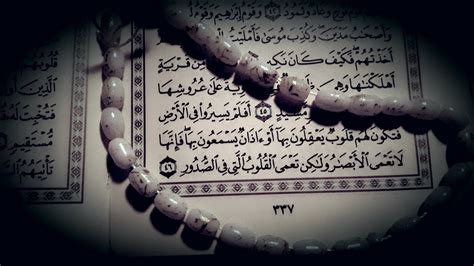 وَعَادٌ وَثَمُودُ ٤٢ وَقَوْمُ إِبْرَٰهِيمَ وَقَوْمُ لُوطٍ
وَأَصْحَٰبُ مَدْيَنَ وَكُذِّبَ مُوسَىٰ فَأَمْلَيْتُ
أَخَذْتُهُمْ فَكَيْفَ كَانَ نَكِيرِ قَرْيَةٍ
أَهْلَكْنَٰهَا وَهِيَ عَلَىٰ عُرُوشِهَا
مَّشِيدٍ ٤٥ أَفَلَمْ يَسِيرُوا۟ فِي ٱلْأَرْضِ
فَتَكُونَ لَهُمْ قُلُوبٌ يَعْقِلُونَ بِهَآ أَوْ ءَاذَانٌ يَسْمَعُونَ بِهَا فَإِنَّهَا
لَا تَعْمَى ٱلْأَبْصَٰرُ وَلَٰكِن تَعْمَى ٱلْقُلُوبُ ٱلَّتِي فِي ٱلصُّدُورِ ٤٦
٣٣٧
قُلُوبُهُمْ
ٱلَّذِينَ
مُّسْتَقِيمٍ
تَأْتِيَهُمُ